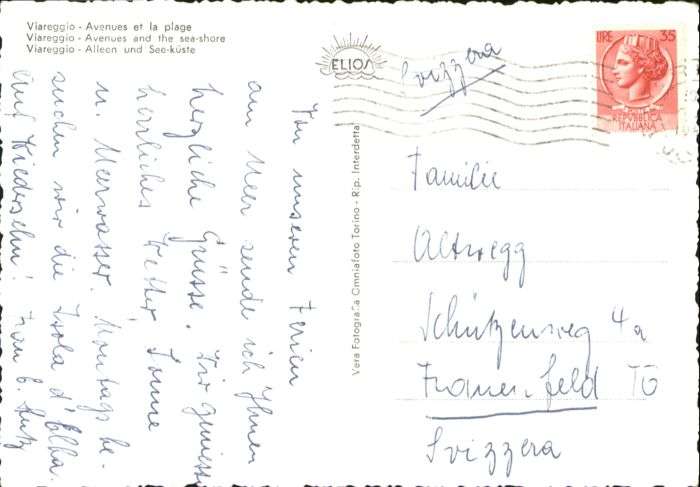 Viareggio - Avenues et la plage
Viareggio - Avenues and the sea-shore
Viareggio - Alleen und See-küste
ELIOS
Svizzera
LIRE 35
REPVBBLICA
ITALIANA
Von unseren Ferien
am Meer sende ich Ihnen
herzliche Grüsse. Wir geniessen
herrliches Wetter Sonne
u. Meerwasser. Montags be-
suchen wir die Isola d'Elba.
Auf Wiedersehn!
Vera Fotografia Omniafoto Torino - Rip. Interdetta
Familie
Altwegg
Schützenweg 4a
Frauenfeld TG
Svizzera